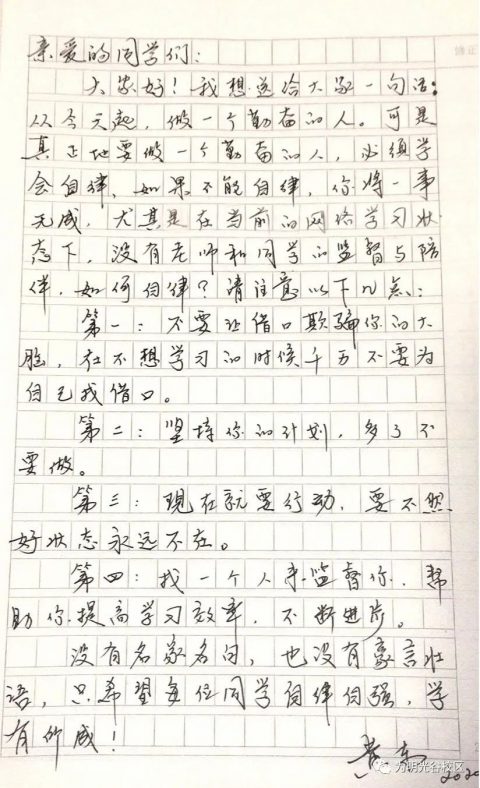 亲爱的同学们：
大家好！我想送给大家一句话：
从今天起，做一个勤奋的人。可是
真正地要做一个勤奋的人，必须学
会自律，如果不能自律，你将一事
无成，尤其是在当前的网络学习状
态下，没有老师和同学的监督与陪
伴，如何自律？请注意以下几点：
第一：不要让借口欺骗你的大
脑，在不想学习的时候千万不要为
自己找借口。
第二：坚持你的计划，多了不
要做。
第三：现在就要行动，要不然
好状态永远不在。
第四：找一个人来监督你，帮
助你提高学习效率，不断进步。
没有名家名句，也没有豪言壮
语，只希望每位同学自律自强，学
有所成！
力明光谷校区
2020